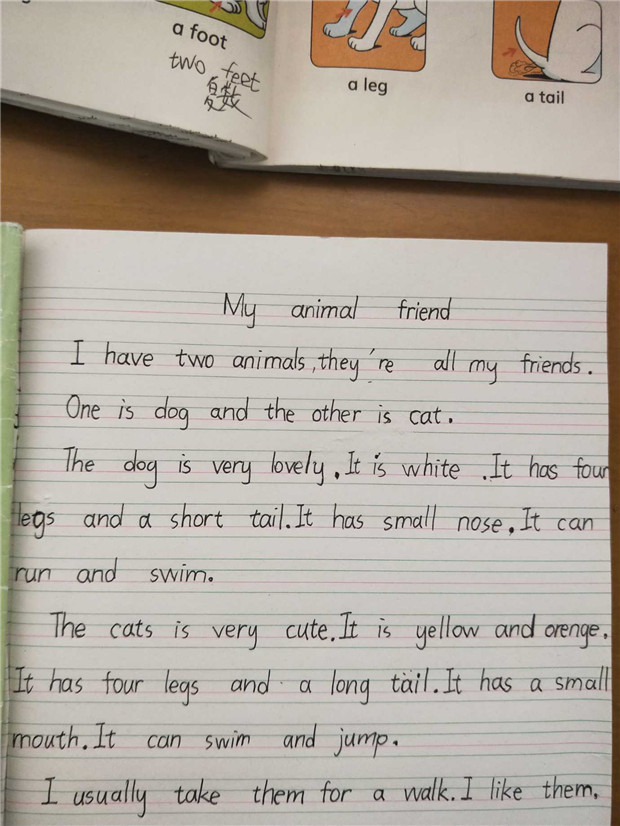 a foot
two feet
复数
a leg
a tail
My animal friend
I have two animals, they're all my friends.
One is dog and the other is cat.
The dog is very lovely. It is white. It has four
legs and a short tail. It has small nose. It can
run and swim.
The cats is very cute. It is yellow and orenge.
It has four legs and a long tail. It has a small
mouth. It can swim and jump.
I usually take them for a walk. I like them.